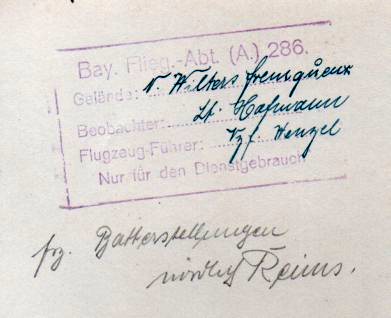 Bay. Flieg.-Abt. (A.) 286.
Gelände: n. Witters
Beobachter: Lt. Hofmann
Flugzeug-Führer: Vzf. Wenzel
Nur für den Dienstgebrauch
frz. Batteriestellungen
nördlich Reims.